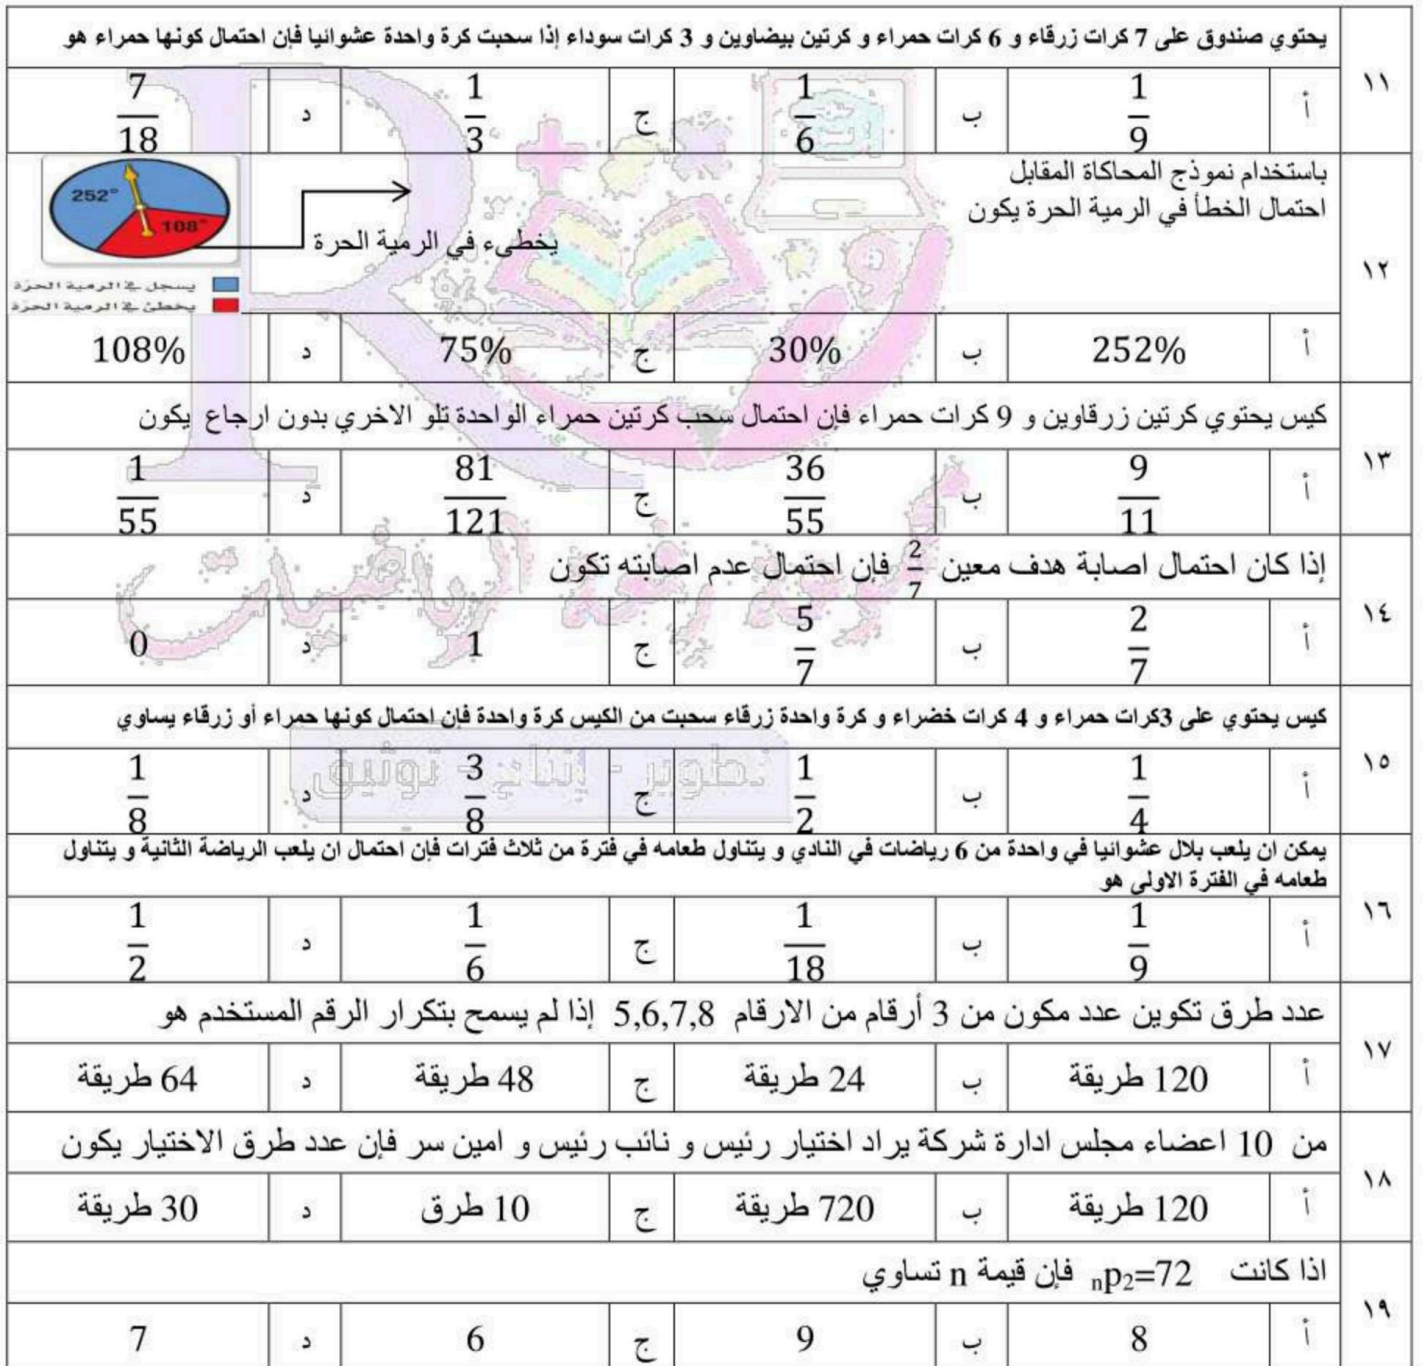 ١١
يحتوي صندوق على 7 كرات زرقاء و 6 كرات حمراء و كرتين بيضاوين و 3 كرات سوداء إذا سحبت كرة واحدة عشوائيا فإن احتمال كونها حمراء هو
أ 1/9 ب 1/6 ج 1/3 د 7/18
١٢
باستخدام نموذج المحاكاة المقابل
احتمال الخطأ في الرمية الحرة يكون
يخطىء في الرمية الحرة
252°
108°
يسجل في الرمية الحرّة
يخطئ في الرمية الحرّة
أ 252% ب 30% ج 75% د 108%
١٣
كيس يحتوي كرتين زرقاوين و 9 كرات حمراء فإن احتمال سحب كرتين حمراء الواحدة تلو الاخري بدون ارجاع يكون
أ 9/11 ب 36/55 ج 81/121 د 1/55
١٤
إذا كان احتمال اصابة هدف معين 2/7 فإن احتمال عدم اصابته تكون
أ 2/7 ب 5/7 ج 1 د 0
١٥
كيس يحتوي على 3كرات حمراء و 4 كرات خضراء و كرة واحدة زرقاء سحبت من الكيس كرة واحدة فإن احتمال كونها حمراء أو زرقاء يساوي
أ 1/4 ب 1/2 ج 3/8 د 1/8
تطوير - إنتاج - توثيق
١٦
يمكن ان يلعب بلال عشوائيا في واحدة من 6 رياضات في النادي و يتناول طعامه في فترة من ثلاث فترات فإن احتمال ان يلعب الرياضة الثانية و يتناول
طعامه في الفترة الاولي هو
أ 1/9 ب 1/18 ج 1/6 د 1/2
١٧
عدد طرق تكوين عدد مكون من 3 أرقام من الارقام 5,6,7,8 إذا لم يسمح بتكرار الرقم المستخدم هو
أ 120 طريقة ب 24 طريقة ج 48 طريقة د 64 طريقة
١٨
من 10 اعضاء مجلس ادارة شركة يراد اختيار رئيس و نائب رئيس و امين سر فإن عدد طرق الاختيار يكون
أ 120 طريقة ب 720 طريقة ج 10 طرق د 30 طريقة
١٩
اذا كانت ₙp₂=72 فإن قيمة n تساوي
أ 8 ب 9 ج 6 د 7